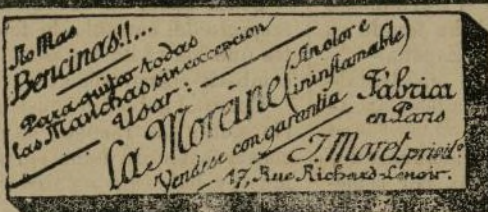 No Mas
Bencinas!!...
Para quitar todas
las Manchas sin excepcion
Usar:
La Moreine (Inolor é
ininflamable)
Vendese con garantia
Fábrica
en Paris
J. Moret, privilo.
17, Rue Richard-Lenoir.